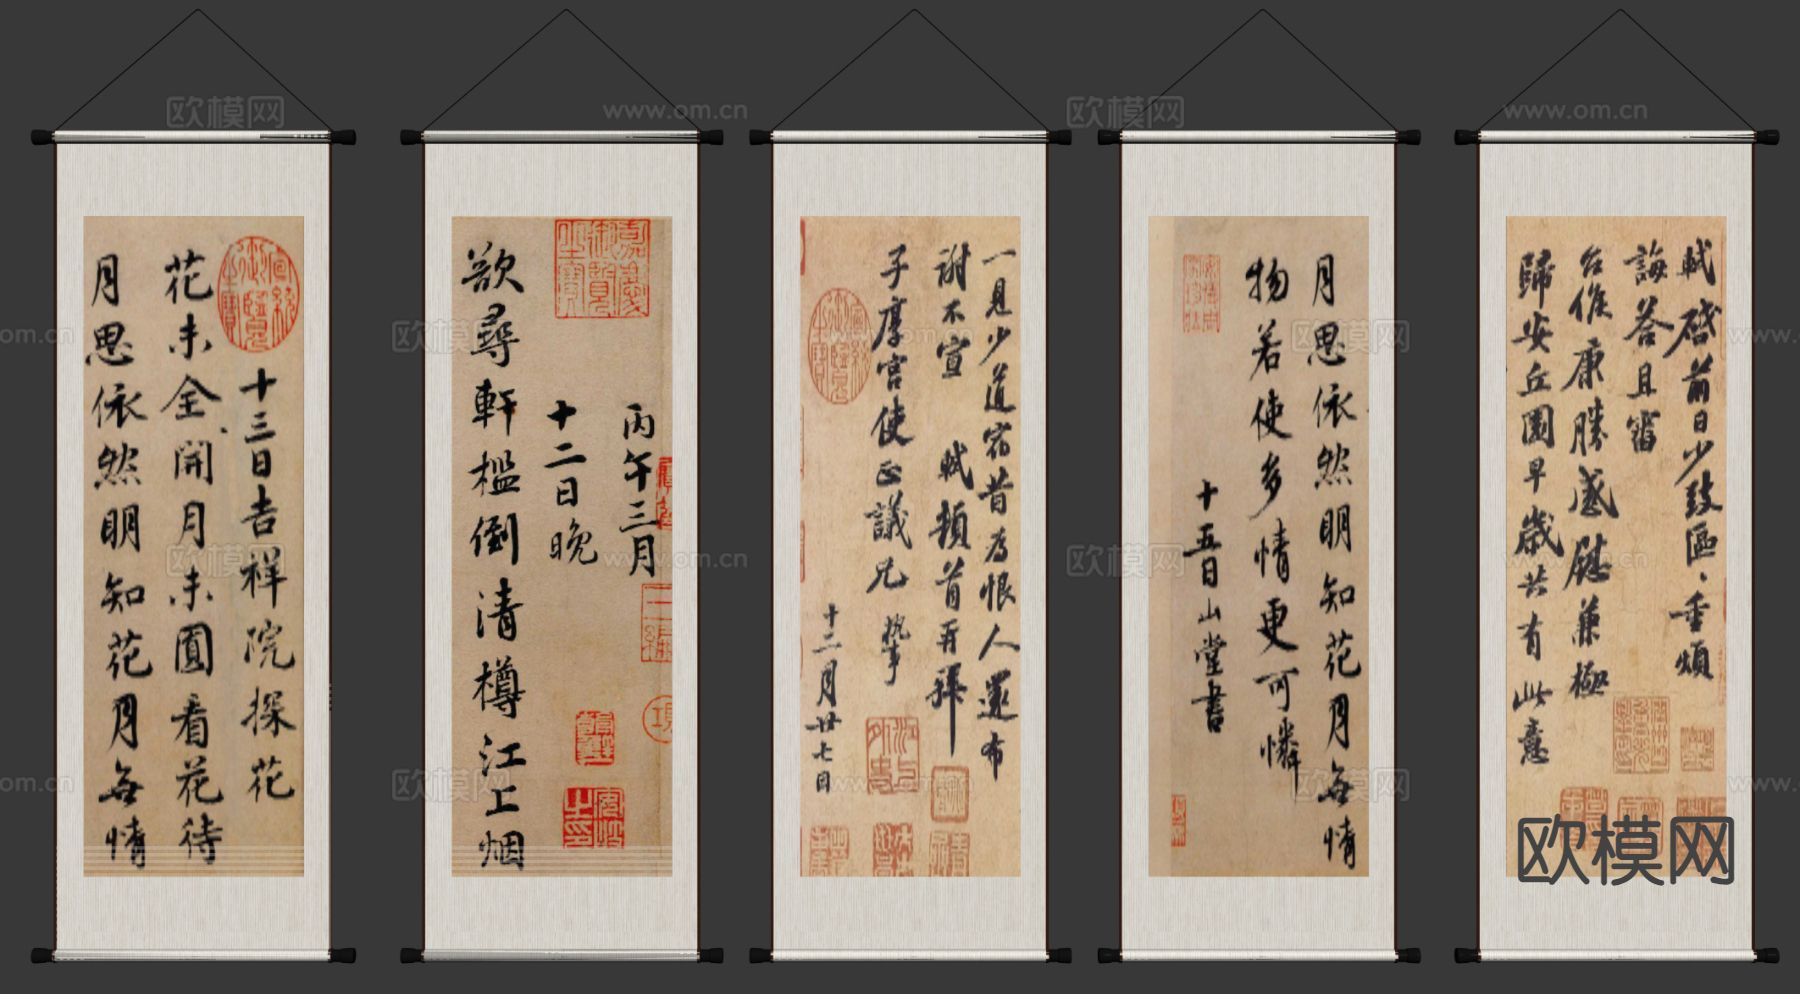 十三日吉祥院探花
花未全開月未圓看花待
月思依然明知花月無情
丙午三月
十二日晚
欲尋軒檻倒清樽江上烟
一見少道宿昔為恨人還布
謝不宣 軾頓首再拜
子厚宮使正議兄 執事
十二月廿七日
月思依然明知花月無情
物若使多情更可憐
十五日山堂書
軾啓前日少致區〻重煩
誨答且審
台候康勝感慰兼極
歸安丘園早歲共有此意
欧模网
www.om.cn